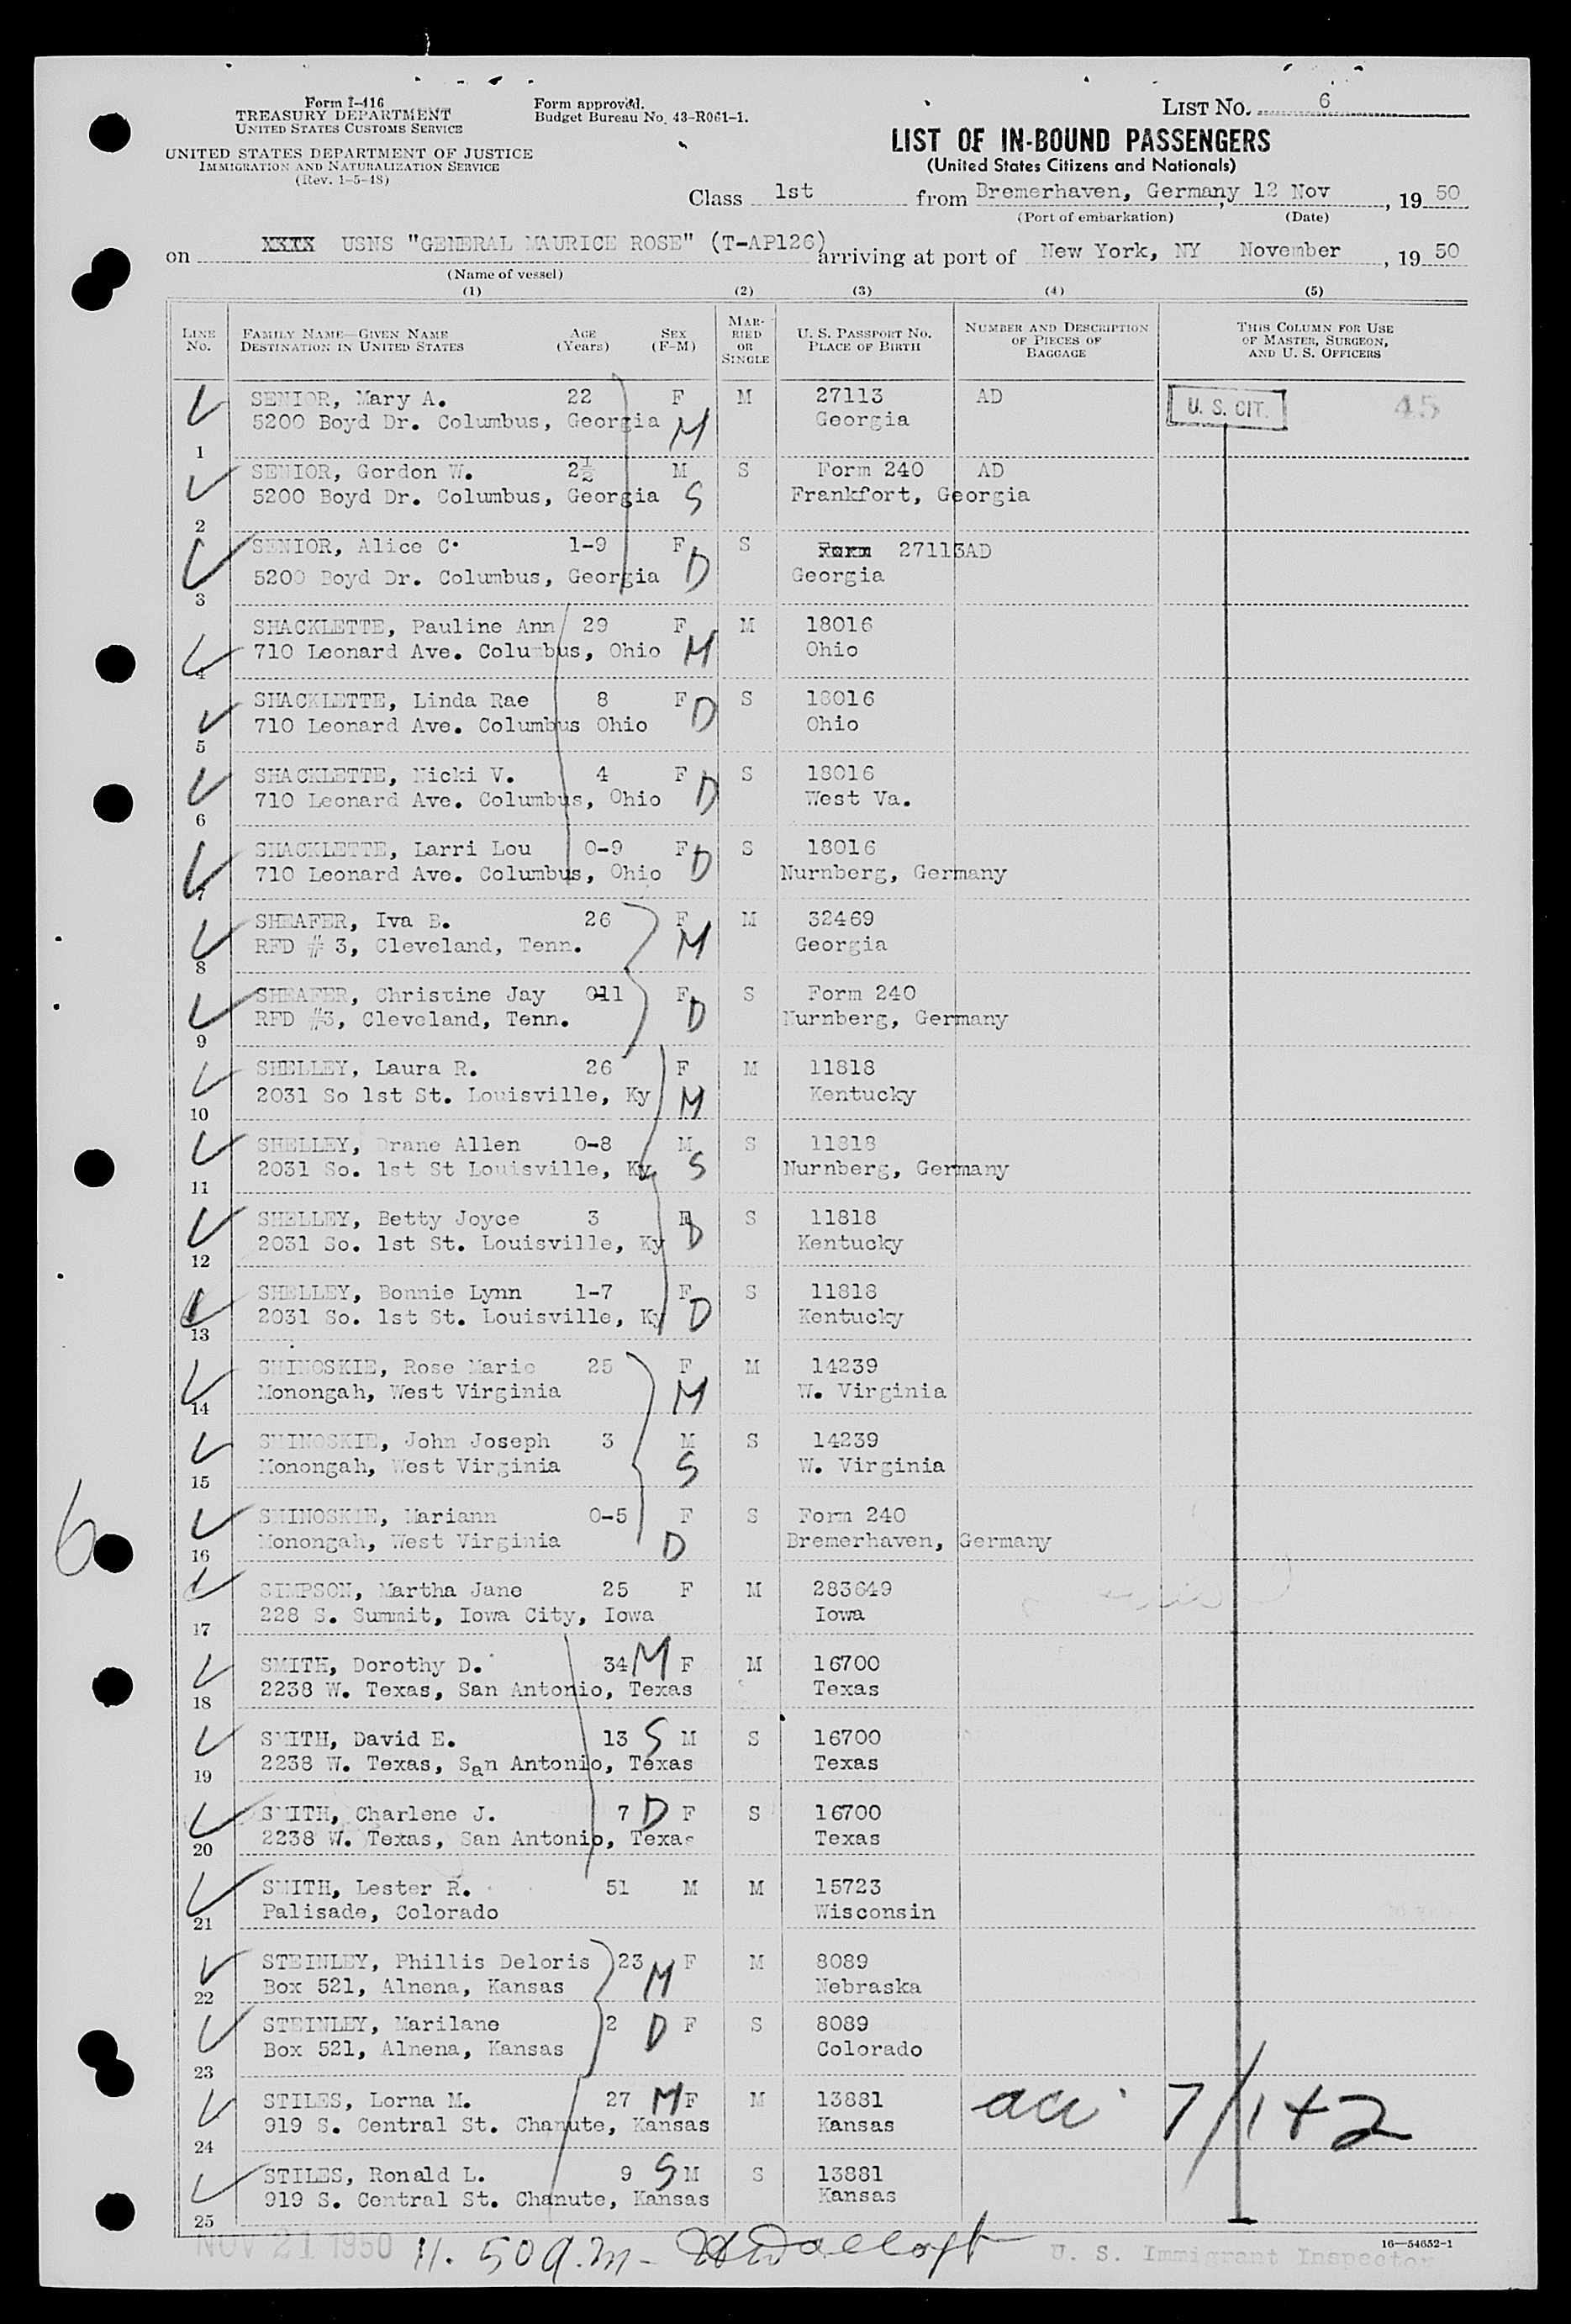 Form I-416
TREASURY DEPARTMENT
UNITED STATES CUSTOMS SERVICE
UNITED STATES DEPARTMENT OF JUSTICE
IMMIGRATION AND NATURALIZATION SERVICE
(Rev. 1-5-48)
Form approved.
Budget Bureau No. 43-R061-1.
LIST NO. 6
LIST OF IN-BOUND PASSENGERS
(United States Citizens and Nationals)
Class 1st from Bremerhaven, Germany, 12 Nov, 19 50
(Port of embarkation) (Date)
on XXXX USNS "GENERAL MAURICE ROSE" (T-AP126) arriving at port of New York, NY November, 19 50
(Name of vessel)
(1) (2) (3) (4) (5)
LINE NO.
FAMILY NAME—GIVEN NAME
DESTINATION IN UNITED STATES
AGE (Years)
SEX (F-M)
MARRIED OR SINGLE
U. S. PASSPORT NO.
PLACE OF BIRTH
NUMBER AND DESCRIPTION OF PIECES OF BAGGAGE
THIS COLUMN FOR USE OF MASTER, SURGEON, AND U. S. OFFICERS
SENIOR, Mary A. 22 F M 27113 AD U. S. CIT. 45
5200 Boyd Dr. Columbus, Georgia M Georgia
1
SENIOR, Gordon W. 2½ M S Form 240 AD
5200 Boyd Dr. Columbus, Georgia S Frankfort, Georgia
2
SENIOR, Alice C. 1-9 F S 27113AD
5200 Boyd Dr. Columbus, Georgia D Georgia
3
SHACKLETTE, Pauline Ann 29 F M 18016
710 Leonard Ave. Columbus, Ohio M Ohio
4
SHACKLETTE, Linda Rae 8 F D S 18016
710 Leonard Ave. Columbus Ohio Ohio
5
SHACKLETTE, Nicki V. 4 F S 18016
710 Leonard Ave. Columbus, Ohio D West Va.
6
SHACKLETTE, Larri Lou 0-9 F D S 18016
710 Leonard Ave. Columbus, Ohio Nurnberg, Germany
7
SHEAFER, Iva E. 26 F M 32469
RFD # 3, Cleveland, Tenn. M Georgia
8
SHEAFER, Christine Jay 0-11 F S Form 240
RFD #3, Cleveland, Tenn. D Nurnberg, Germany
9
SHELLEY, Laura R. 26 F M 11818
2031 So 1st St. Louisville, Ky M Kentucky
10
SHELLEY, Drane Allen 0-8 M S 11818
2031 So. 1st St Louisville, Ky. S Nurnberg, Germany
11
SHELLEY, Betty Joyce 3 F S 11818
2031 So. 1st St. Louisville, Ky D Kentucky
12
SHELLEY, Bonnie Lynn 1-7 F S 11818
2031 So. 1st St. Louisville, Ky D Kentucky
13
SHINOSKIE, Rose Marie 25 F M 14239
Monongah, West Virginia M W. Virginia
14
SHINOSKIE, John Joseph 3 M S 14239
Monongah, West Virginia S W. Virginia
15
SHINOSKIE, Mariann 0-5 F S Form 240
Monongah, West Virginia D Bremerhaven, Germany
16
6
SIMPSON, Martha Jane 25 F M 283649
228 S. Summit, Iowa City, Iowa Iowa
17
SMITH, Dorothy D. 34 M F M 16700
2238 W. Texas, San Antonio, Texas Texas
18
SMITH, David E. 13 S M S 16700
2238 W. Texas, San Antonio, Texas Texas
19
SMITH, Charlene J. 7 D F S 16700
2238 W. Texas, San Antonio, Texas Texas
20
SMITH, Lester R. 51 M M 15723
Palisade, Colorado Wisconsin
21
STEINLEY, Phillis Deloris 23 M F M 8089
Box 521, Alnena, Kansas Nebraska
22
STEINLEY, Marilane 2 D F S 8089
Box 521, Alnena, Kansas Colorado
23
STILES, Lorna M. 27 M F M 13881
919 S. Central St. Chanute, Kansas Kansas
24
7/1+2
STILES, Ronald L. 9 S M S 13881
919 S. Central St. Chanute, Kansas Kansas
25
NOV 21 1950 11.50 a.m. U. S. Immigrant Inspector
16—54652-1